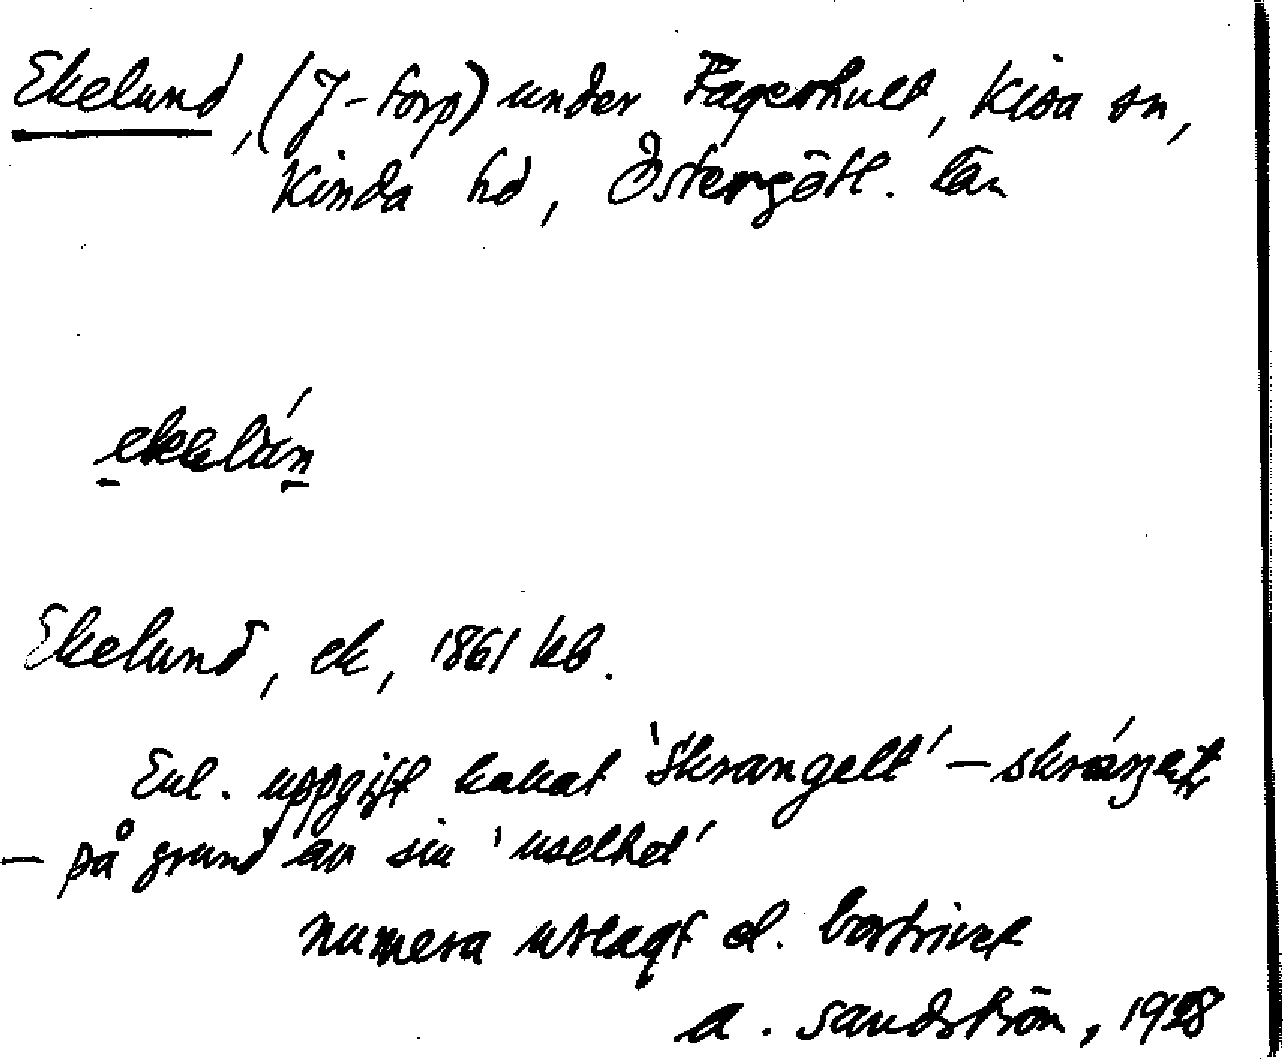 Ekelund, (J-torp) under Fagerhult, Kisa sn,
Kinda hd, Östergötl. län
ekelún
Ekelund, ek, 1861 kb.
Enl. uppgift kakat 'Skrangelt' – skráŋelt
– på grund av sin 'uselhet'
numera utlagt el. bortrivet
A. Sandström, 1928